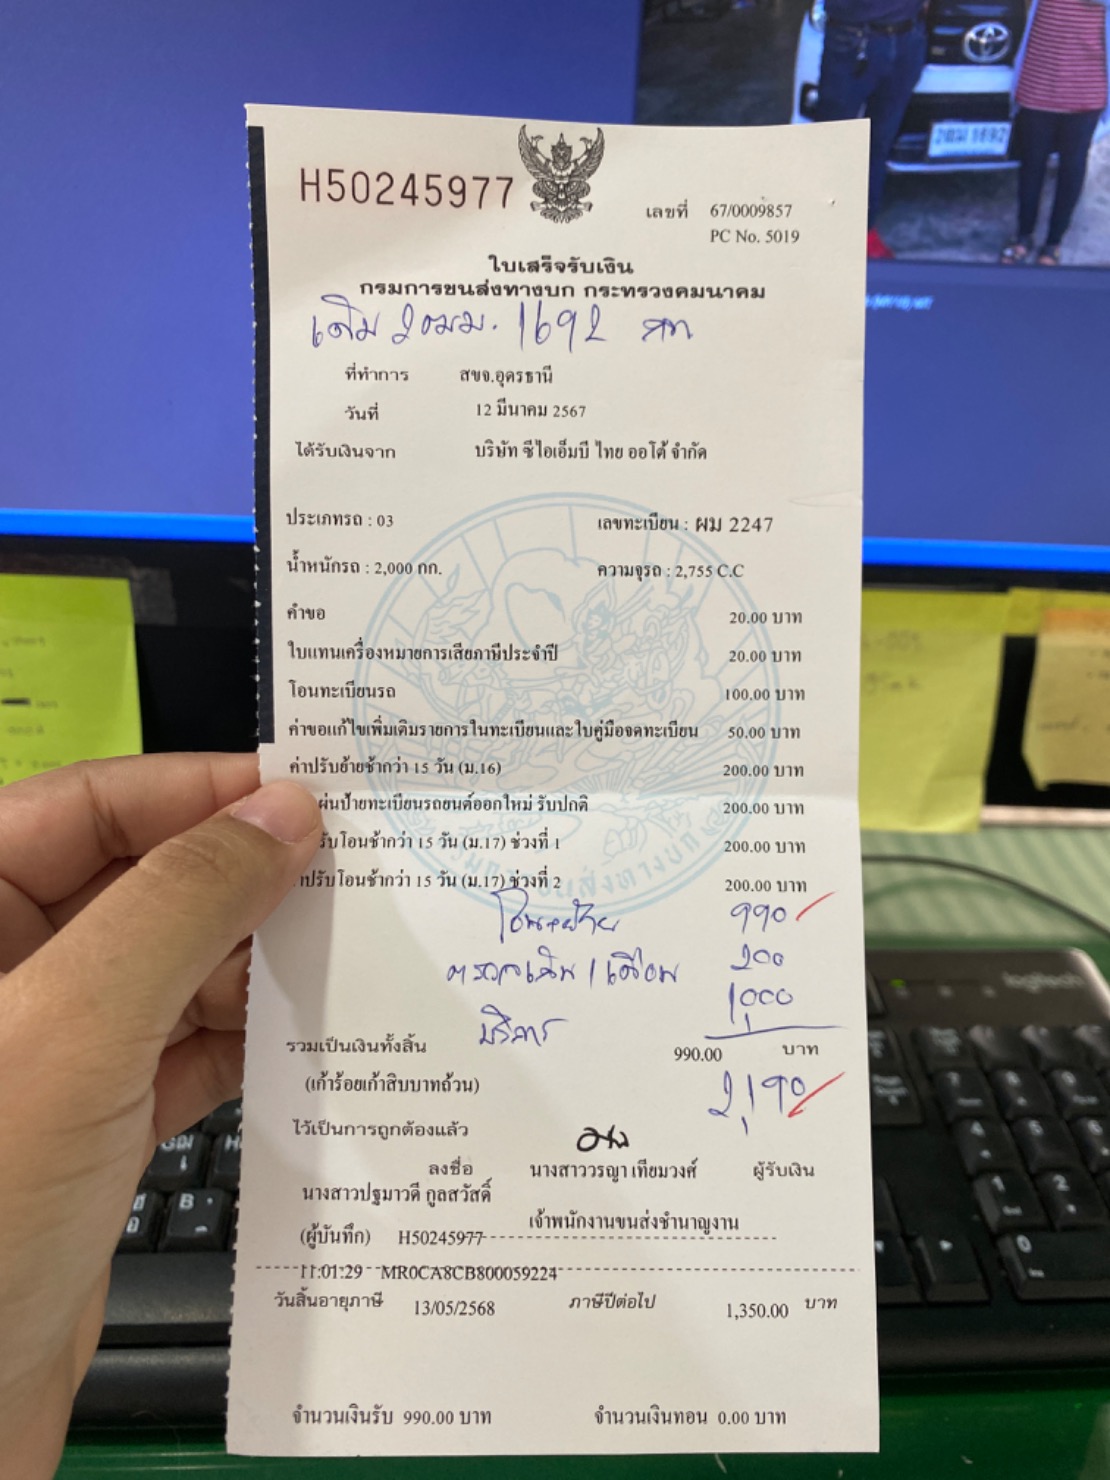 H50245977
เลขที่ 67/0009857
PC No. 5019
ใบเสร็จรับเงิน
กรมการขนส่งทางบก กระทรวงคมนาคม
เดิม 2ฒม. 1692 กท
ที่ทำการ สขจ.อุดรธานี
วันที่ 12 มีนาคม 2567
ได้รับเงินจาก บริษัท ซีไอเอ็มบี ไทย ออโต้ จำกัด
ประเภทรถ : 03 เลขทะเบียน : ผม 2247
น้ำหนักรถ : 2,000 กก. ความจุรถ : 2,755 C.C
คำขอ 20.00 บาท
ใบแทนเครื่องหมายการเสียภาษีประจำปี 20.00 บาท
โอนทะเบียนรถ 100.00 บาท
ค่าขอแก้ไขเพิ่มเติมรายการในทะเบียนและใบคู่มือจดทะเบียน 50.00 บาท
ค่าปรับย้ายช้ากว่า 15 วัน (ม.16) 200.00 บาท
ผ่นป้ายทะเบียนรถยนต์ออกใหม่ รับปกติ 200.00 บาท
รับโอนช้ากว่า 15 วัน (ม.17) ช่วงที่ 1 200.00 บาท
าปรับโอนช้ากว่า 15 วัน (ม.17) ช่วงที่ 2 200.00 บาท
โอน+ย้าย 990
ตรวจเดิม 1 เดือน 200
บริการ 1,000
รวมเป็นเงินทั้งสิ้น 990.00 บาท
(เก้าร้อยเก้าสิบบาทถ้วน) 2,190
ไว้เป็นการถูกต้องแล้ว
ลงชื่อ นางสาววรญา เทียมวงศ์ ผู้รับเงิน
นางสาวปฐมาวดี กูลสวัสดิ์
เจ้าพนักงานขนส่งชำนาญงาน
(ผู้บันทึก) H50245977
11:01:29 MR0CA8CB800059224
วันสิ้นอายุภาษี 13/05/2568 ภาษีปีต่อไป 1,350.00 บาท
จำนวนเงินรับ 990.00 บาท จำนวนเงินทอน 0.00 บาท
logitech